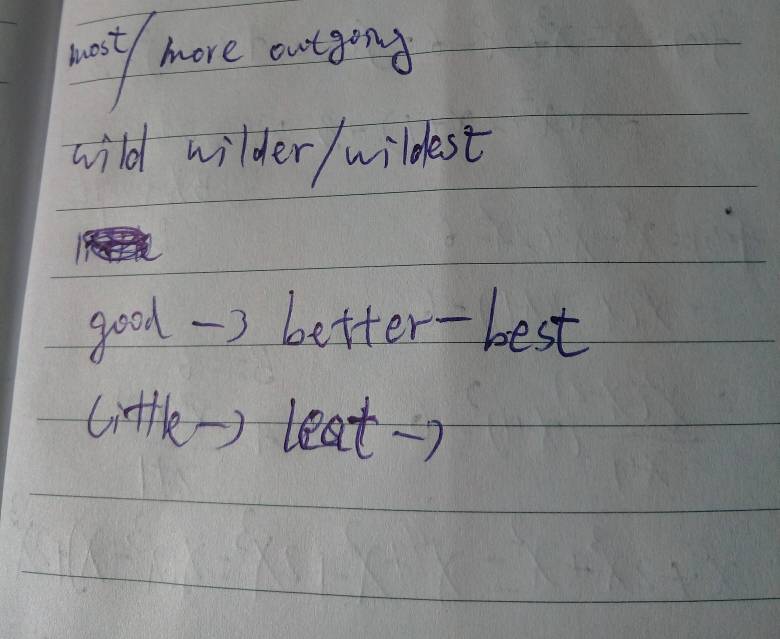 most/more outgoing
wild wilder/wildest
good → better - best
little → leat →